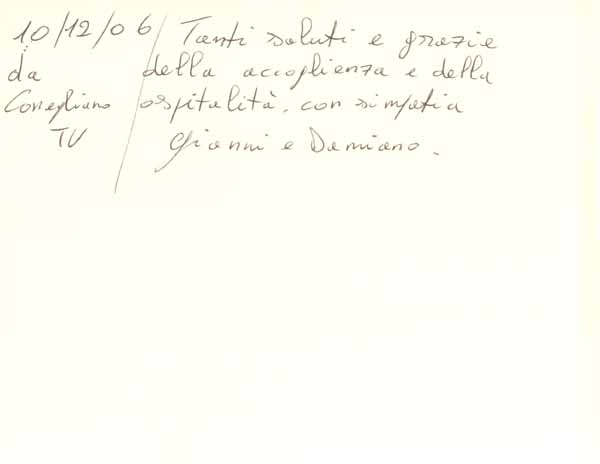 10/12/06
da
Conegliano
TV
Tanti saluti e grazie
della accoglienza e della
ospitalità, con simpatia
Gianni e Damiano.